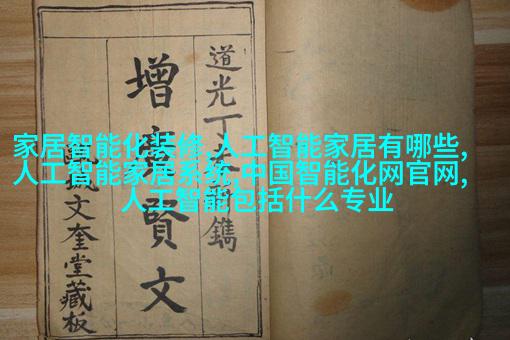 道光丁鐫
增廣賢文
文奎堂藏板
家居智能化装修,人工智能家居有哪些,
人工智能家居系统,中国智能化网官网,
人工智能包括什么专业